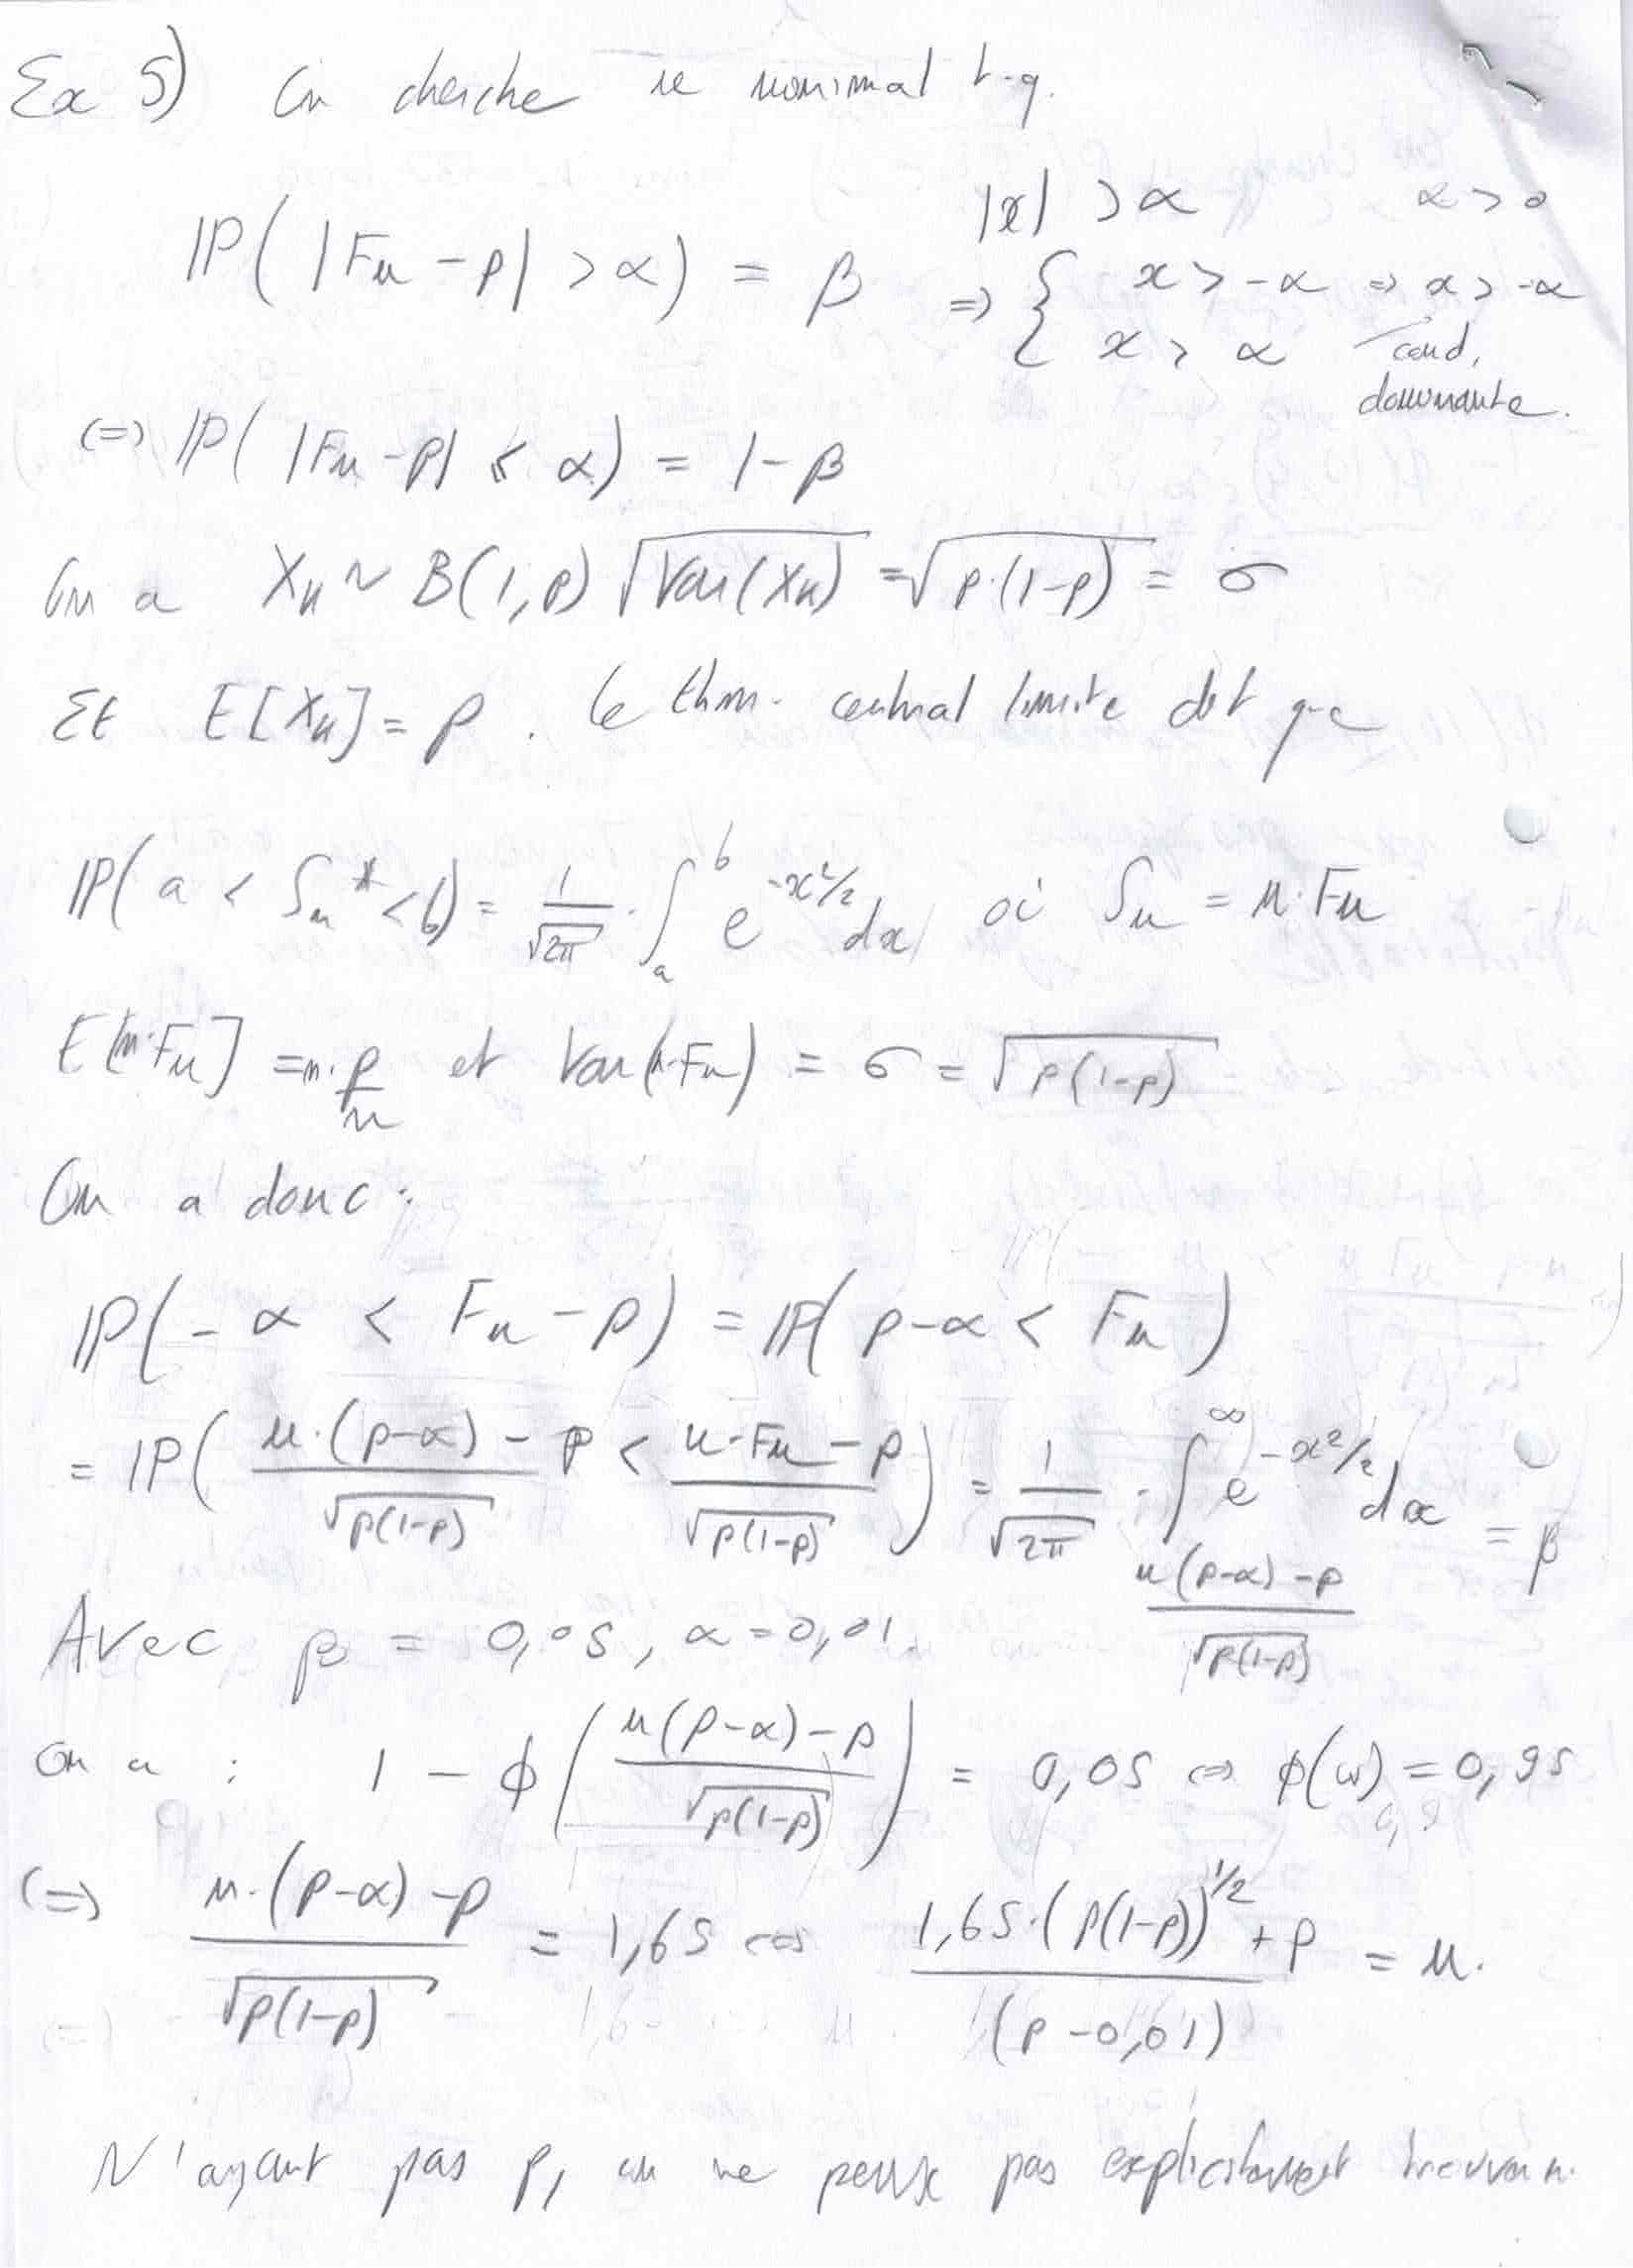 Ex 5) On cherche n minimal t.q.
|x| > α α > 0
IP( |Fn - p| > α) = β => { x > -α => x > -α
x > α cond.
dominante.
(=) IP( |Fn - p| ≤ α) = 1 - β
On a Xn ~ B(1,p) √Var(Xn) = √p·(1-p) = σ
Et E[Xn] = p . le thm. central limite dit que
IP( a < Sn* < b) = 1/√2π · ∫_a^b e^{-x²/2} dx où Sn = n·Fn
E[n·Fn] = n·p/n et Var(n·Fn) = σ = √p(1-p)
On a donc :
IP(- α < Fn - p) = IP( p-α < Fn )
= IP( n·(p-α) - p / √p(1-p) < n·Fn - p / √p(1-p) ) = 1/√2π · ∫_{n(p-α)-p / √p(1-p)}^∞ e^{-x²/2} dx = β
Avec β = 0,05, α = 0,01.
on a : 1 - ϕ( n(p-α) - p / √p(1-p) ) = 0,05 <=> ϕ(w) = 0,95
(=) n·(p-α) - p / √p(1-p) = 1,65 <=> 1,65·(p(1-p))^{1/2} + p / (p - 0,01) = n.
N'ayant pas p, on ne peux pas explicitement trouver n.